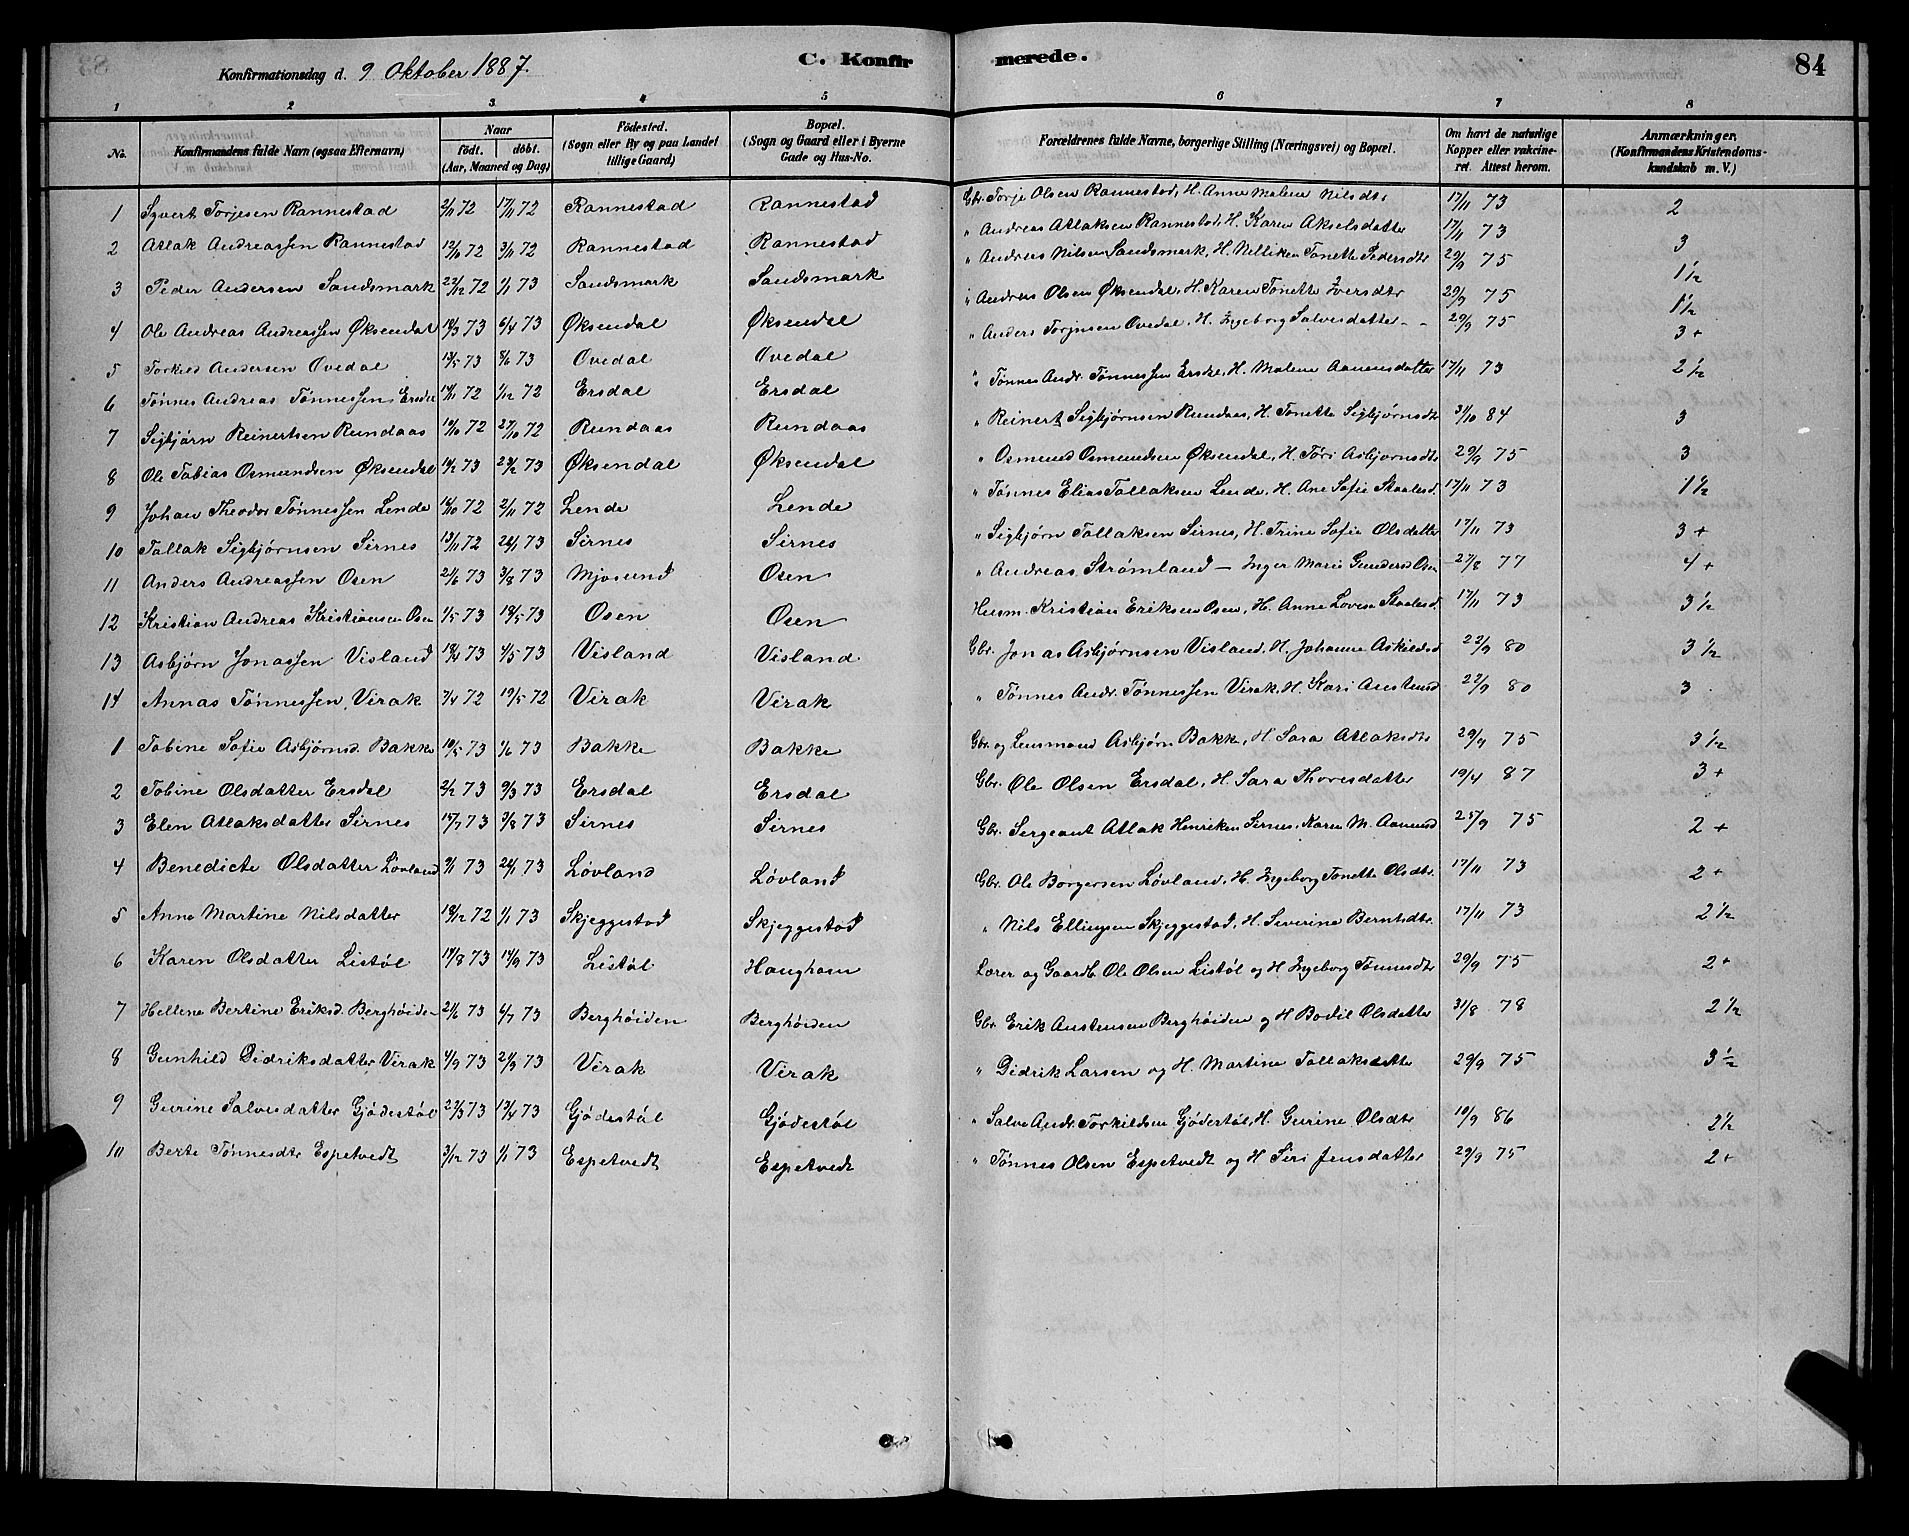 Konfirmationsdag d. 9 Oktober 1887. C. Konfirmerede. 84
1 2 3 4 5 6 7 8
No. Konfirmandens fulde Navn (ogsaa Efternavn) Naar født. døbt. (Aar, Maaned og Dag) Födested. (Sogn eller By og paa Landet tillige Gaard) Bopæl. (Sogn og Gaard eller i Byerne Gade og Hus-No. Forældrenes fulde Navne, borgerlige Stilling (Næringsvei) og Bopæl. Om havt de naturlige Kopper eller vakcineret. Attest herom. Anmærkninger. (Konfirmandens Kristendomskundskab m. V.)
1 Syvert Torjesen Rannestad 2/11 72 17/11 72 Rannestad Rannestad Gbr. Torje Olsen Rannestad, H. Anne Malene Nilsdtr 17/11 73 2
2 Atlak Andreassen Rannestad 12/10 72 3/11 72 Rannestad Rannestad " Andreas Atlaksen Rannestad, H. Karen Akselsdatter 17/11 73 3
3 Peder Andersen Sandsmark 22/12 72 1/1 73 Sandsmark Sandsmark " Andreas Nilsen Sandsmark, H. Nilliken Tonette Pedersdtr 29/9 75 1½
4 Ole Andreas Andreassen Øksendal 18/3 73 6/4 73 Øksendal Øksendal " Andreas Olsen Øksendal, H. Karen Tonette Iversdtr 29/9 75 1½
5 Torkild Andersen Ovedal 13/5 73 8/6 73 Ovedal Ovedal " Anders Torjusen Ovedal, H. Ingeborg Salvesdatter - - 29/9 75 3+
6 Tønnes Andreas Tønnessen Ersdal 14/11 72 1/12 72 Ersdal Ersdal " Tønnes Andr. Tønnessen Ersdal, H. Malene Aanensdatter 17/11 73 2½
7 Sigbjørn Reinertsen Rundaas 10/10 72 27/10 72 Rundaas Rundaas " Reinert Sigbjørnsen Rundaas, H. Tonette Sigbjørnsdtr 31/10 84 3
8 Ole Tobias Osmundsen Øksendal 14/2 73 23/2 73 Øksendal Øksendal " Osmund Osmundsen Øksendal, H. Tori Asbjørnsdtr 29/9 75 3
9 Johan Theodor Tønnessen Lende 16/10 72 2/11 72 Lende Lende " Tønnes Elias Tallaksen Lende, H. Ane Sofie Staalesd. 17/11 73 1½
10 Tallak Sigbjørnsen Sirnes 13/11 72 24/1 73 Sirnes Sirnes " Sigbjørn Tallaksen Sirnes, H. Trine Sofie Olsdatter 17/11 73 3+
11 Anders Andreassen Osen 21/6 73 3/8 73 Mjosund Osen " Andreas Strømland - Inger Marie Gundersd Osen 27/8 77 4+
12 Kristian Andreas Kristiansen Osen 1/5 73 18/5 73 Osen Osen Husm. Kristian Eriksen Osen, H. Anne Lovise Staalesd. 17/11 73 3½
13 Asbjørn Jonassen Visland 18/4 73 4/5 73 Visland Visland Gbr. Jonas Asbjørnsen Visland, H. Johanne Askildsd 22/9 80 3½
14 Annas Tønnessen Virak 7/4 72 19/5 72 Virak Virak " Tønnes Andr. Tønnessen Virak, H. Kari Austensd 22/9 80 3
1 Tobine Sofie Asbjørnsd. Bakke 10/5 73 1/6 73 Bakke Bakke Gbr. og Lensmand Asbjørn Bakk, H. Sara Atlaksdtr 29/9 75 3½
2 Tobine Olsdatter Ersdal 2/2 73 9/3 73 Ersdal Ersdal Gbr. Ole Olsen Ersdal, H. Sara Thoresdatter 19/4 87 3+
3 Elen Atlaksdatter Sirnes 15/7 73 3/8 73 Sirnes Sirnes Gbr. Sergeant Atlak Henriksen Sirnes, Karen M. Aamund 25/9 75 2+
4 Benedicte Olsdatter Løvland 9/1 73 24/1 73 Løvland Løvland Gbr. Ole Børgersen Løvland, H. Ingeborg Tonette Olsdtr. 17/11 73 2+
5 Anne Martine Nilsdatter 18/12 72 1/1 73 Skjeggestad Skjeggestad " Nils Ellingsen Skjeggestad, H. Severine Berntsdtr. 17/11 73 2½
6 Karen Olsdatter Listøl 14/8 73 14/9 73 Listøl Haughom Lærer og Gaardb. Ole Olsen Listøl og H. Ingeborg Tønnesdtr 29/9 75 2+
7 Helline Bertine Eriksd. Berghöiden 21/6 73 6/7 73 Berghöiden Berghöiden Gbr. Erik Austensen Berghöiden og H Bodil Olsdatter 31/8 78 2½
8 Gunhild Didriksdatter Virak 4/9 73 21/9 73 Virak Virak " Didrik Larsen og H. Martine Tallaksdatter 29/9 75 3½
9 Gurine Salvesdatter Gjödestöl 22/3 73 13/4 73 Gjödestöl Gjödestöl " Salve Andr. Torkildsen Gjödestöl, H. Gurine Olsdtr 10/9 86 2½
10 Berte Tønnesdtr Espetvedt 3/12 73 1/1 73 Espetvedt Espetvedt " Tønnes Olsen Espetvedt og H Siri Jensdatter 29/9 75 2+